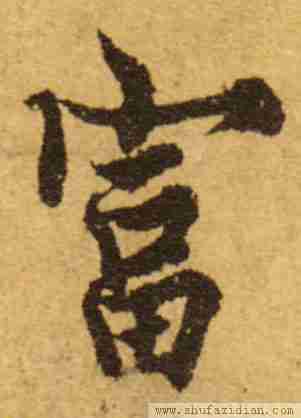 富
www.shufazidian.com